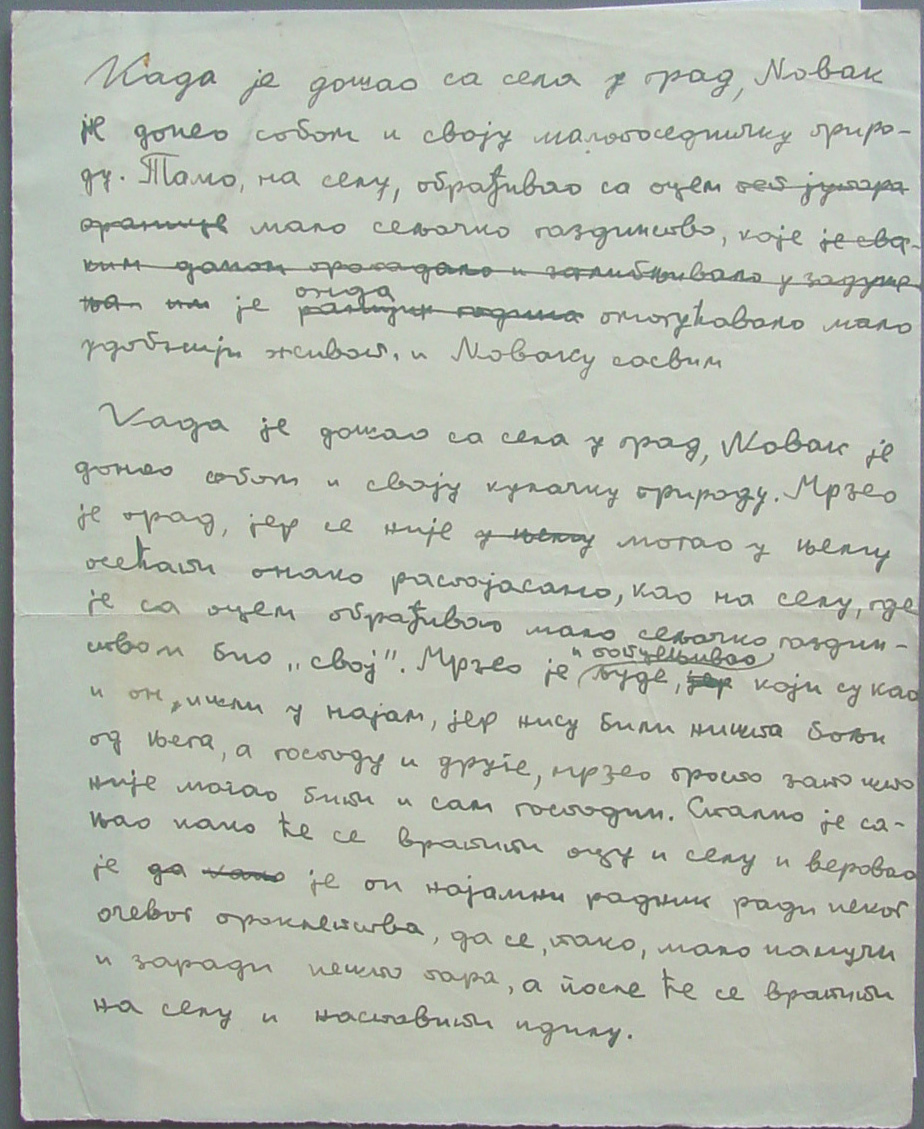 Када је дошао са села у град, Новак
је донео собом и своју малопоседничку приро-
ду. Тамо, на селу, обрађивао са оцем пет јутара
оранице мало сељачко газдинство, које је сва-
ким даном пропадало и заглибљивало у задуже-
ња им је онда ранијих година омогућавало мало
удобнији живот. и Новаку сасвим
Када је дошао са села у град, Новак је
донео собом и своју кулачку природу. Мрзео
је град, јер се није у њему могао у њему
осећати онако распојасано, као на селу, где
је са оцем обрађивао мало сељачко газдин-
ством био „свој". Мрзео је и потцењивао људе, јер који су као
и он, ишли у најам, јер нису били ништа бољи
од њега, а господу и друге, мрзео просто зато што
није могао бити и сам господин. Стално је са-
њао како ће се вратити оцу и селу и веровао
је да како је он најамни радник ради неког
очевог проклетства, да се, тако, мало намучи
и заради нешто пара, а после ће се вратити
на селу и наставити идилу.